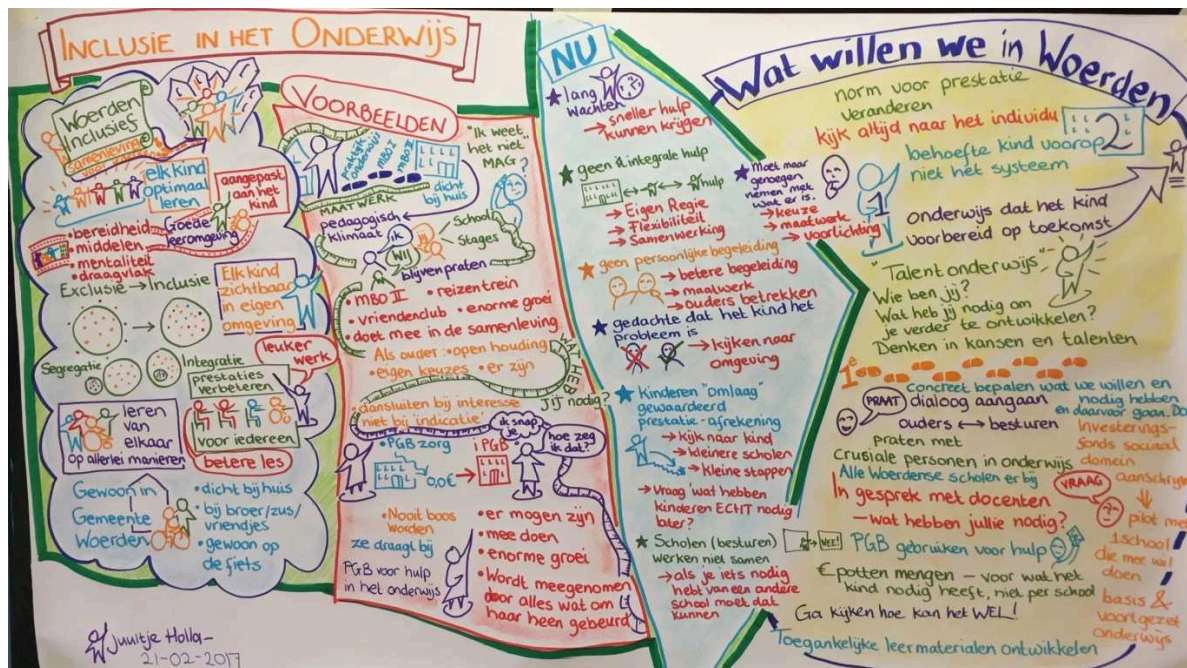 INCLUSIE IN HET ONDERWIJS
Woerden
Inclusief
samenleving
voor
elk kind
optimaal
leren
aangepast
aan het
kind
Goede
leeromgeving
• bereidheid
• middelen
• mentaliteit
• draagvlak
Exclusie → Inclusie
Elk kind
zichtbaar
in eigen
omgeving
Segregatie
Integratie
leuker
werk
prestaties
verbeteren
voor iedereen
betere les
leren
van
elkaar
op allerlei manieren
Gewoon in
Gemeente
Woerden
• dicht bij huis
• bij broer/zus/
vriendjes
• gewoon op
de fiets
Juultje Holla-
21-02-2017
VOORBEELDEN
praktijk
onderwijs
MBO I
MBO II
MAATWERK
dicht
bij huis
"Ik weet
het niet"
MAG?
pedagogisch
klimaat
ik
WIJ
School
Stages
blijven praten
• MBO II
• reizen trein
• vriendenclub
• enorme groei
• doet mee in de samenleving
Als ouder: • open houding
• eigen keuzes
• er zijn
WAT HEB
JIJ nodig?
• aansluiten bij interesse
niet bij indicatie
ik snap
je
hoe zeg
ik dat?
• PGB zorg
0,0€
1 PGB
• Nooit boos
worden
ze draagt bij
PGB voor hulp
in het onderwijs
• er mogen zijn
• mee doen
• enorme groei
• Wordt meegenomen
door alles wat om
haar heen gebeurd
NU
lang
wachten
→ sneller hulp
kunnen krijgen
geen integrale hulp
hulp
→ Eigen Regie
→ Flexibiliteit
→ Samenwerking
Moet maar
genoegen
nemen met
wat er is.
→ keuze
→ maatwerk
→ voorlichting
geen persoonlijke begeleiding
→ betere begeleiding
→ maatwerk
→ ouders betrekken
gedachte dat het kind het
probleem is
→ kijken naar
omgeving
Kinderen "omlaag"
gewaardeerd
prestatie-afrekening
→ kijk naar kind
→ kleinere scholen
→ kleine stappen
→ Vraag 'wat hebben
kinderen ECHT nodig
later?
Scholen (besturen)
werken niet samen
→ als je iets nodig
hebt van een andere
school moet dat
kunnen
Wat willen we in Woerden
norm voor prestatie
veranderen
kijk altijd naar het individu
2
behoefte kind voorop
niet het systeem
1
onderwijs dat het kind
voorbereid op toekomst
"Talentonderwijs"
Wie ben jij?
Wat heb jij nodig om
je verder te ontwikkelen?
Denken in kansen en talenten
1e
concreet bepalen wat we willen en
nodig hebben
en daarvoor gaan.
PRAAT
dialoog aangaan
ouders ↔ besturen
praten met
crusiale personen in onderwijs
Alle Woerdense scholen er bij
In gesprek met docenten
- wat hebben jullie nodig?
VRAAG
WEL!
PGB gebruiken voor hulp
€ potten mengen - voor wat het
kind nodig heeft, niet per school
Ga kijken hoe kan het WEL!
Toegankelijke leermaterialen ontwikkelen
Investerings-
fonds sociaal
domein
aanschrijven
pilot met
1 school
die mee wil
doen
basis &
voortgezet
onderwijs